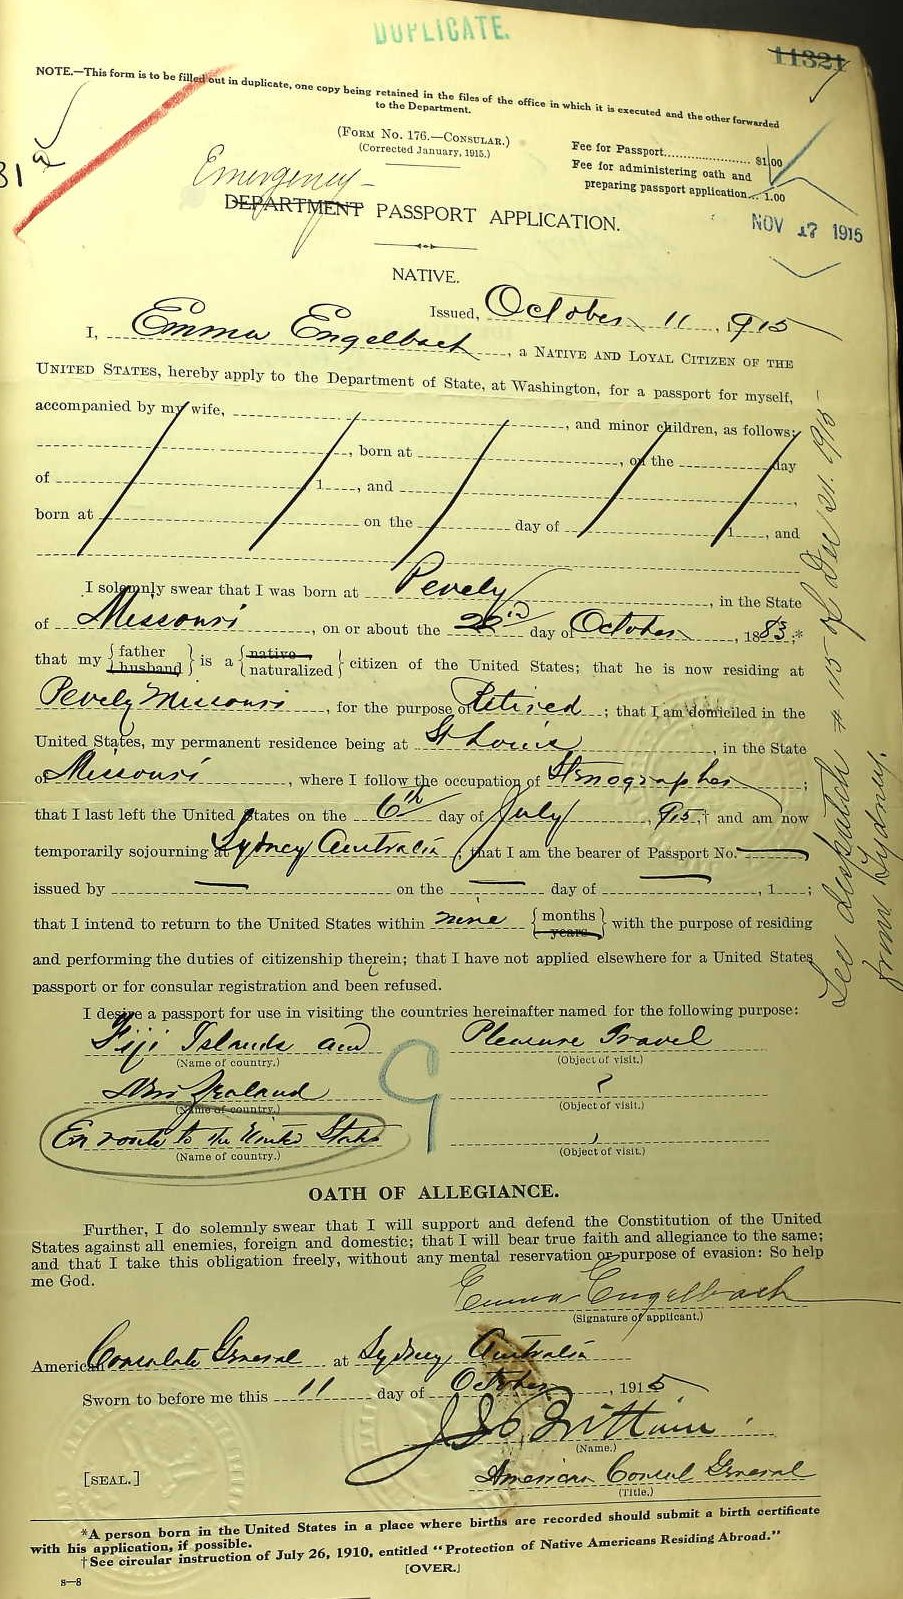 DUPLICATE.
11321
NOTE.—This form is to be filled out in duplicate, one copy being retained in the files of the office in which it is executed and the other forwarded
to the Department.
(FORM NO. 176.—CONSULAR.)
(Corrected January, 1915.)
Fee for Passport........................ $1.00
Fee for administering oath and
preparing passport application... 1.00
NOV 17 1915
Emergency
DEPARTMENT PASSPORT APPLICATION.
NATIVE.
Issued, October 11, 1915
I, Emma Engelbach, a NATIVE AND LOYAL CITIZEN OF THE
UNITED STATES, hereby apply to the Department of State, at Washington, for a passport for myself,
accompanied by my wife, , and minor children, as follows:
, born at , on the day
of 1 , and ,
born at on the day of 1 , and
I solemnly swear that I was born at Pevely, in the State
of Missouri, on or about the day of October, 1883;*
that my {father husband} is a {native naturalized} citizen of the United States; that he is now residing at
Pevely Missouri, for the purpose of Retired; that I am domiciled in the
United States, my permanent residence being at St Louis, in the State
of Missouri, where I follow the occupation of Stenographer;
that I last left the United States on the 6th day of July, 1915,† and am now
temporarily sojourning at Sydney Australia, that I am the bearer of Passport No. —
issued by — on the — day of —, 1 ;
that I intend to return to the United States within nine {months years} with the purpose of residing
and performing the duties of citizenship therein; that I have not applied elsewhere for a United States
passport or for consular registration and been refused.
I desire a passport for use in visiting the countries hereinafter named for the following purpose:
Fiji Islands and Pleasure Travel
(Name of country.) (Object of visit.)
New Zealand
(Name of country.) (Object of visit.)
En route to the United States
(Name of country.) (Object of visit.)
OATH OF ALLEGIANCE.
Further, I do solemnly swear that I will support and defend the Constitution of the United
States against all enemies, foreign and domestic; that I will bear true faith and allegiance to the same;
and that I take this obligation freely, without any mental reservation or purpose of evasion: So help
me God.
Emma Engelbach
(Signature of applicant.)
American Consulate General at Sydney Australia
Sworn to before me this 11 day of October, 1915
Brittain
(Name.)
[SEAL.]
American Consul General
(Title.)
*A person born in the United States in a place where births are recorded should submit a birth certificate
with his application, if possible.
†See circular instruction of July 26, 1910, entitled "Protection of Native Americans Residing Abroad."
[OVER.]
8—8
See despatch # 115 of Dec 21. 1915
from Sydney.